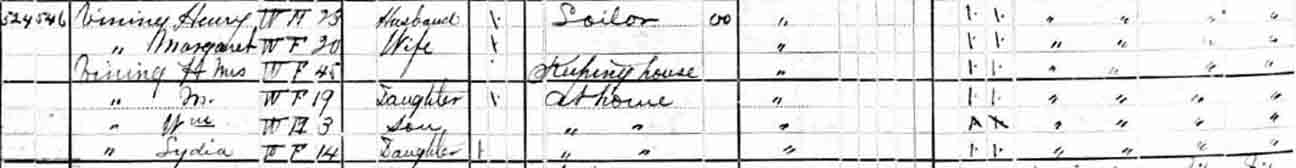 524 546 Vining Henry W M 23 Husband 1 Sailor 00 " 1 1 " " " "
" Margaret W F 20 Wife 1 " 1 1 " " " "
Vining H Mrs W F 45 Keeping house " 1 1 " " " "
" M. W F 19 Daughter 1 at home " 1 1 " " " "
" Wm W M 3 Son " " " " " " "
" Lydia W F 14 Daughter 1 " " " 1 1 " " " "